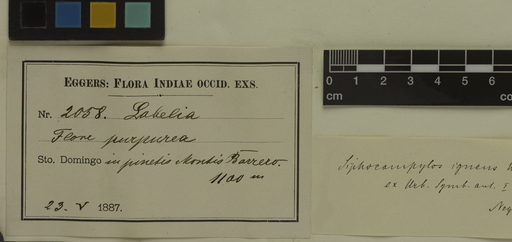 EGGERS: FLORA INDIAE OCCID. EXS.
Nr. 2058. Lobelia
Flore purpurea
Sto. Domingo in pinetis Montis Barrero
1100 m
23. V 1887.
0 1 2 3 4 5 6
cm
Siphocampylos igneus
ex Urb. Symb. ant. I